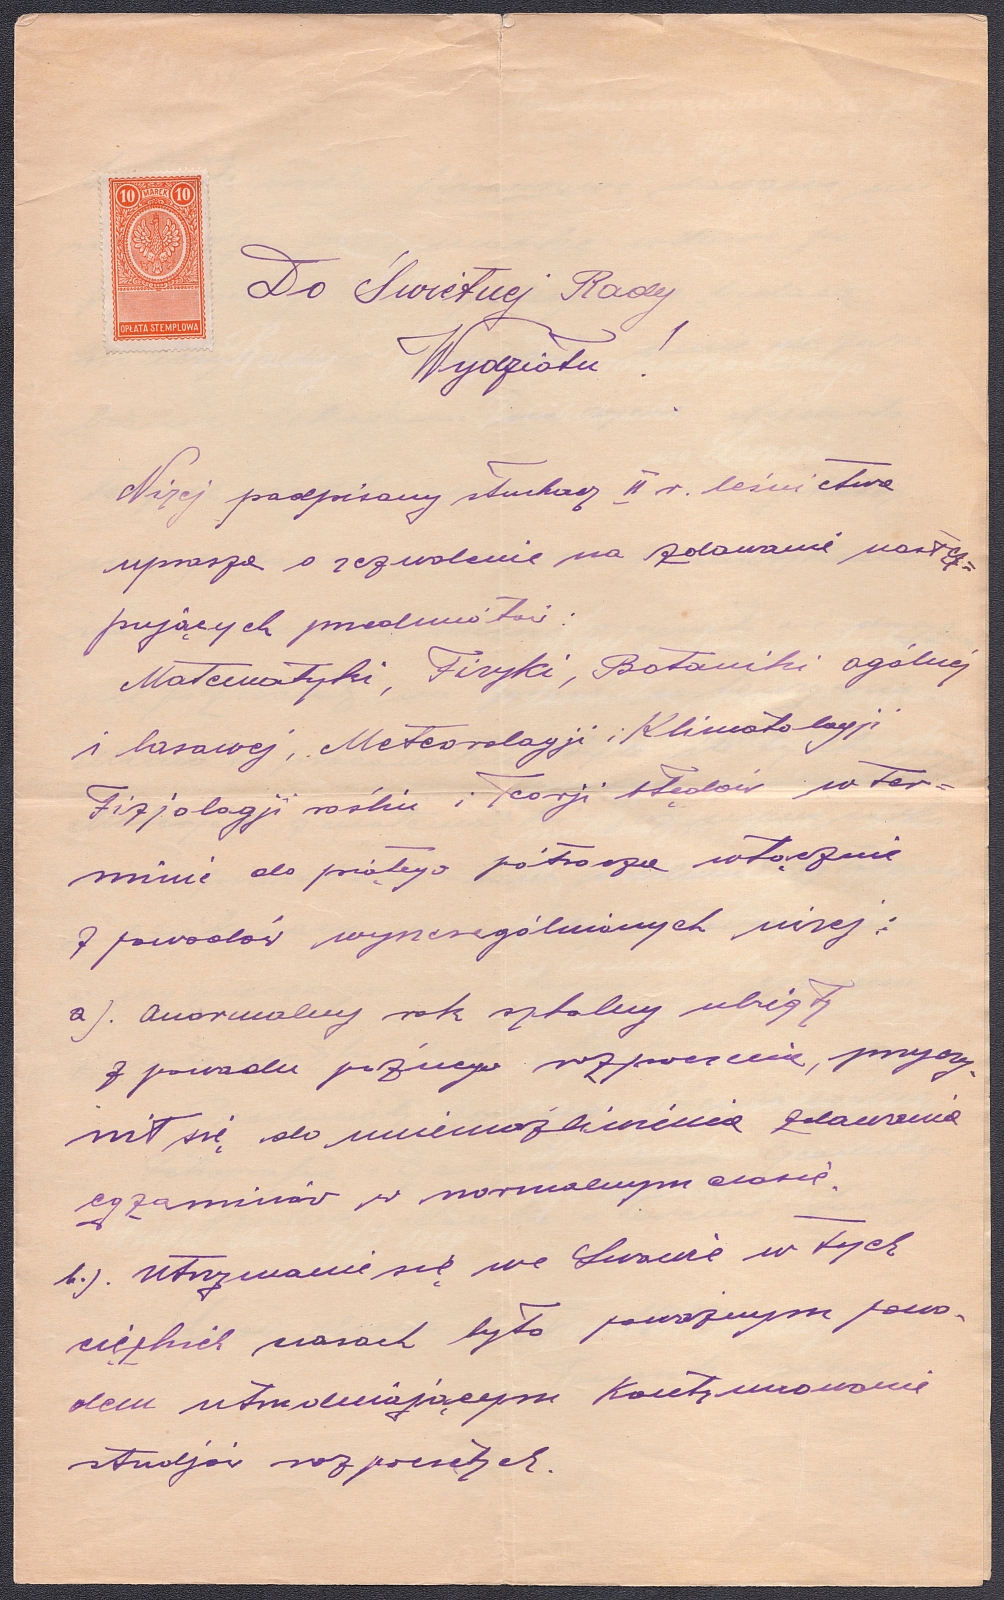 10 MAREK 10
OPŁATA STEMPLOWA
Do Świetnej Rady
Wydziału !
Niżej podpisany słuchacz II r. leśnictwa
uprasza o zezwolenie na zdawanie nastę=
pujących przedmiotów:
Matematyki, Fizyki, Botaniki ogólnej
i lasowej, Meteorologji i Klimatologji
Fizjologji roślin i Teorji błędów w ter=
minie do piątego półrocza włącznie
z powodów wyszczególnionych niżej:
a). Anormalny rok szkolny ubiegły
z powodu późnego rozpoczęcia, przyczy-
nił się do uniemożliwienia zdawania
egzaminów w normalnym czasie.
b.). Utrzymanie się we Lwowie w tych
ciężkich czasach było poważnym powo-
dem utrudniającym kontynuowanie
studjów rozpoczętych.